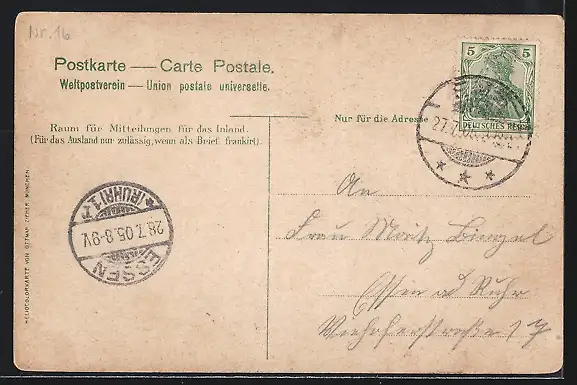 Nr. 16
Postkarte — Carte Postale.
Weltpostverein — Union postale universelle.
Raum für Mitteilungen für das Inland.
(Für das Ausland nur zulässig, wenn als Brief frankirt).
Nur für die Adresse
5 5
DEUTSCHES REICH
27.7.05
* * *
ESSEN
28.7.05.8-9V.
*(RUHR)1
An
Frau Moritz Bingel
Essen ad Ruhr
HELIOCOLORKARTE VON OTTMAR ZIEHER, MÜNCHEN